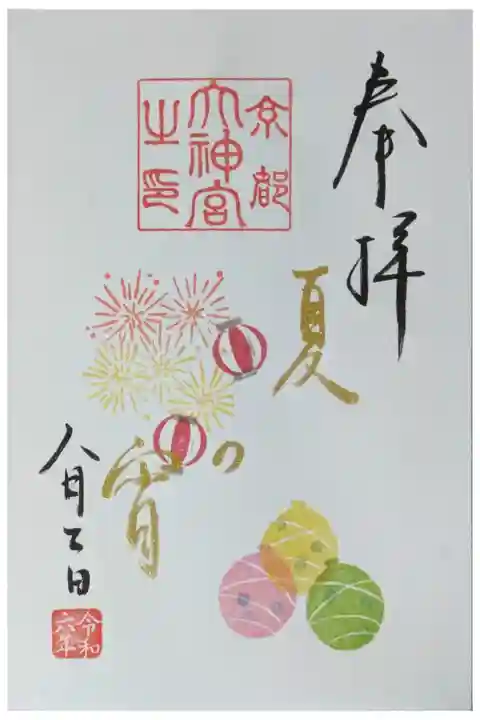 奉拝
京都
大神宮
之印
夏の宵
八月 日
令和
六年